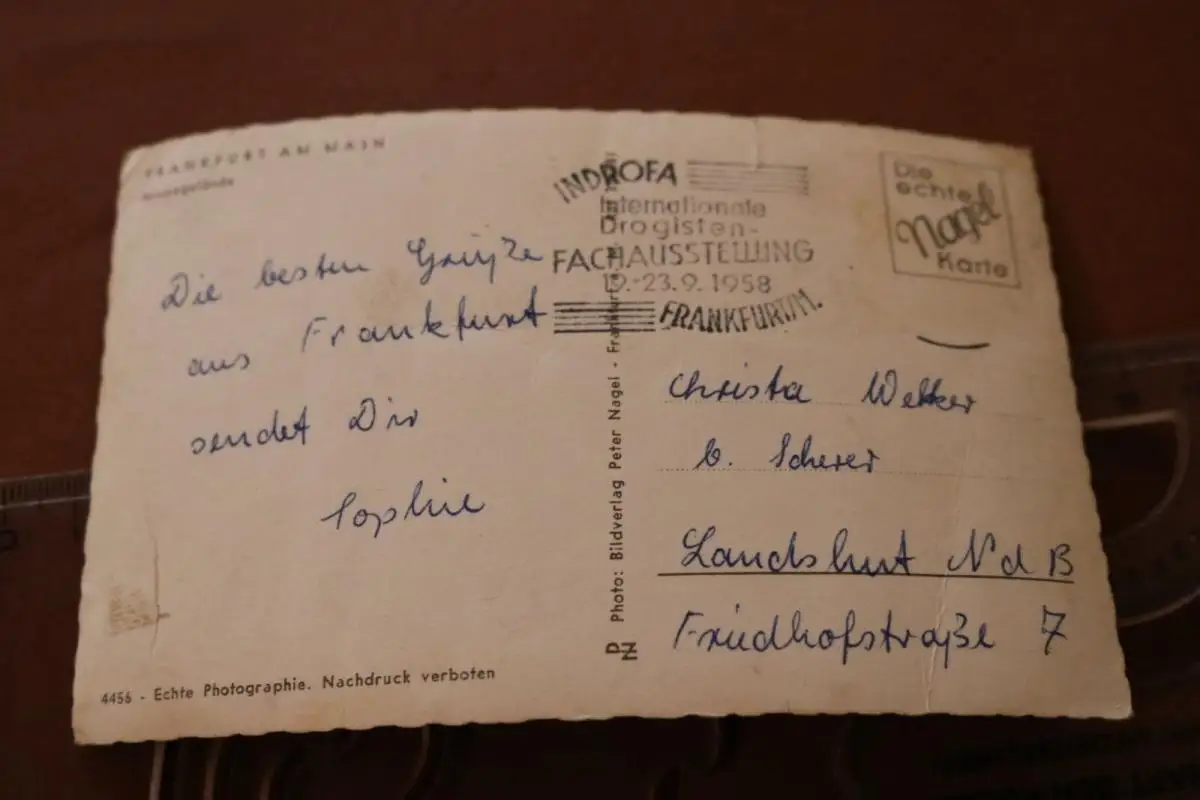 FRANKFURT AM MAIN
Messegelände
Die besten Grüße
aus Frankfurt
sendet Dir
Sophie
4456 - Echte Photographie. Nachdruck verboten
INDROFA
Internationale
Drogisten-
FACHAUSSTELLUNG
19.-23.9.1958
FRANKFURT/M.
Photo: Bildverlag Peter Nagel - Frankfurt
PN
Die
echte
Nagel
Karte
Christa Welker
b. Scherer
Landshut NdB
Friedhofstraße 7